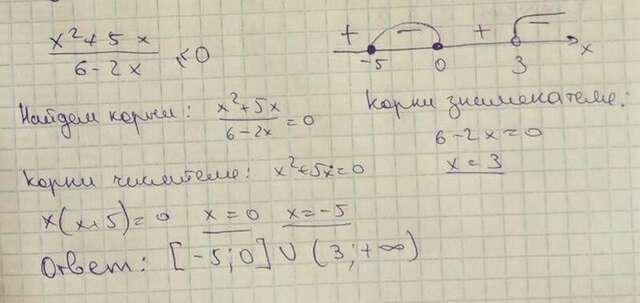 x²+5x / 6-2x ≤ 0
+ - + -
-5 0 3 x
Найдем корни: x²+5x / 6-2x = 0
Корни знаменателя:
6-2x=0
x=3
Корни числителя: x²+5x=0
x(x+5)=0 x=0 x=-5
Ответ: [-5;0]∪(3;+∞)